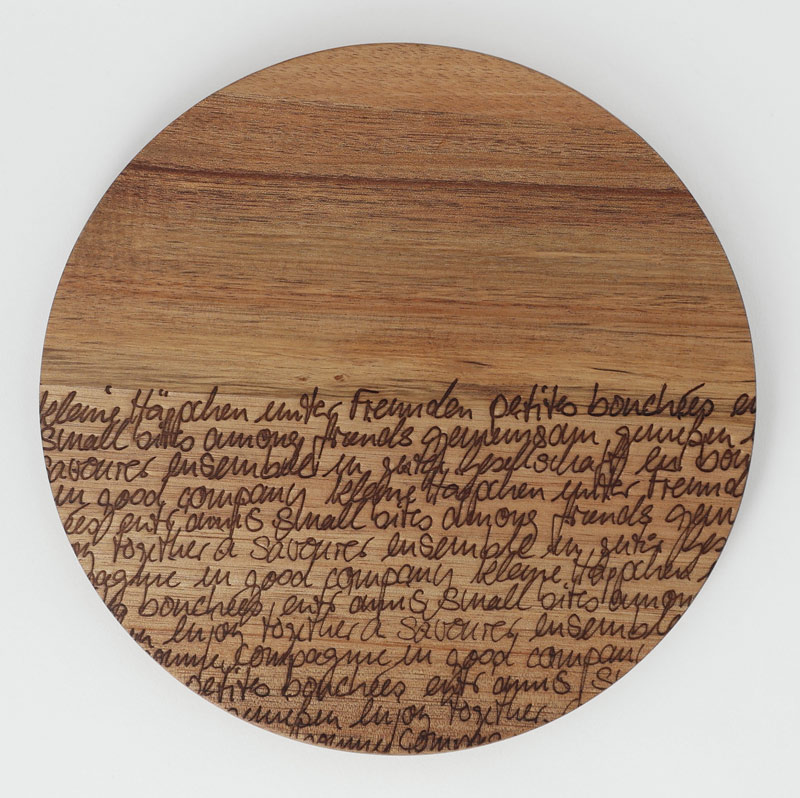 kleine Häppchen unter Freunden petites bouchées en
small bites among friends gemeinsam geniessen
savourer ensemble in guter Gesellschaft en bon
in good company kleine Häppchen unter Freund
ées entr amis small bites among friends gem
together à savourer ensemble in guter Ges
pagnie in good company kleine Häppchen
bouchées entr amis small bites among
enjoy together à savourer ensemble
compagnie in good company
petites bouchées entr amis s
enjoy together